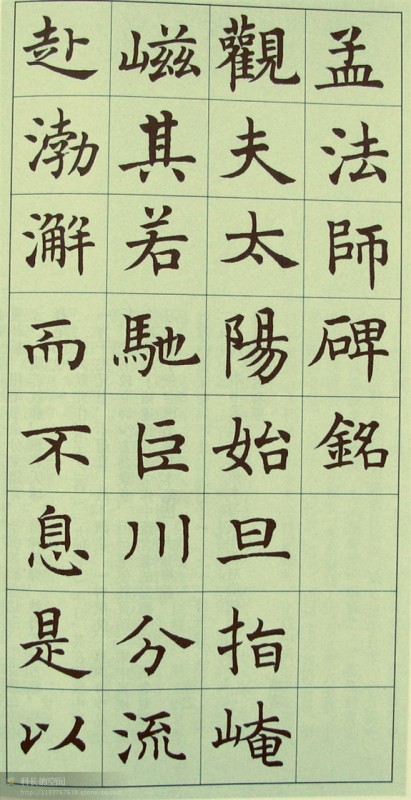 孟法師碑銘
觀夫太陽始旦指崦
嵫其若馳巨川分流
赴渤澥而不息是以
科长的空间